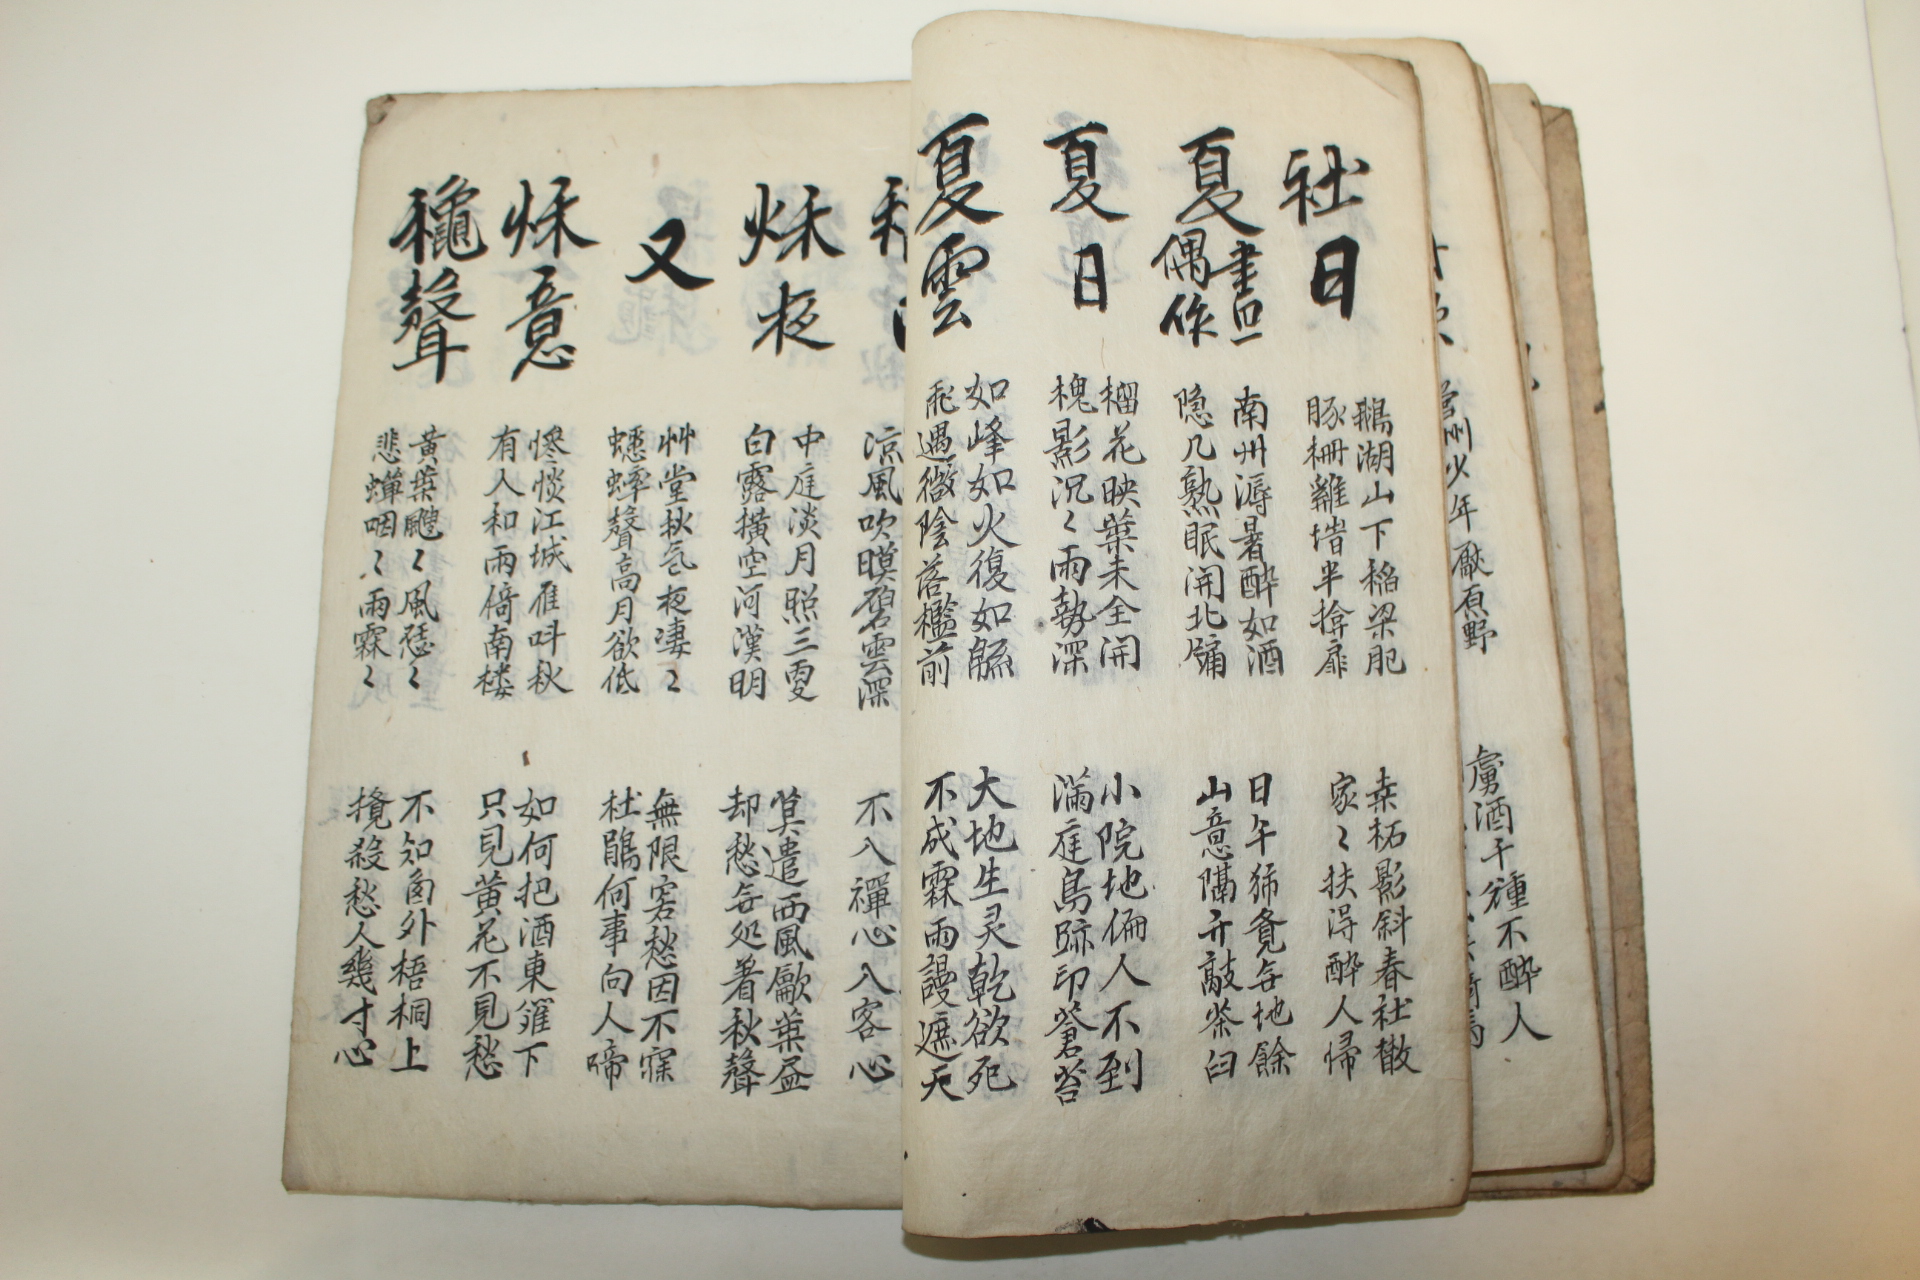 社日
鵝湖山下稻梁肥
豚柵雞塒半揜扉
桑柘影斜春社散
家〻扶得醉人歸
夏晝偶作
南州溽暑醉如酒
隐几熟眠開北牖
日午獨覺無地餘
山童隔竹敲茶臼
夏日
榴花映葉未全開
槐影沉〻雨勢深
小院地偏人不到
滿庭鳥跡印蒼苔
夏雲
如峰如火復如緜
飛過微陰落檻前
大地生灵乾欲死
不成霖雨謾遮天
涼風吹
碧雲深
不入禪心入客心
秌夜
中庭淡月照三更
白露橫空河漢明
莫遣西風歐葉盡
却愁无処著秋聲
又
艸堂秋氣夜凄〻
蟋蟀聲高月欲低
無限窮愁因不寐
杜鵑何事向人啼
秌意
慘惔江城雁呌秋
有人和雨倚南楼
如何把酒東籬下
只見黄花不見愁
龝聲
黃葉颼〻風恁〻
悲蟬咽〻雨霖〻
不知窗外梧桐上
攪殺愁人幾寸心
營州少年厭原野
虜酒千鍾不醉人